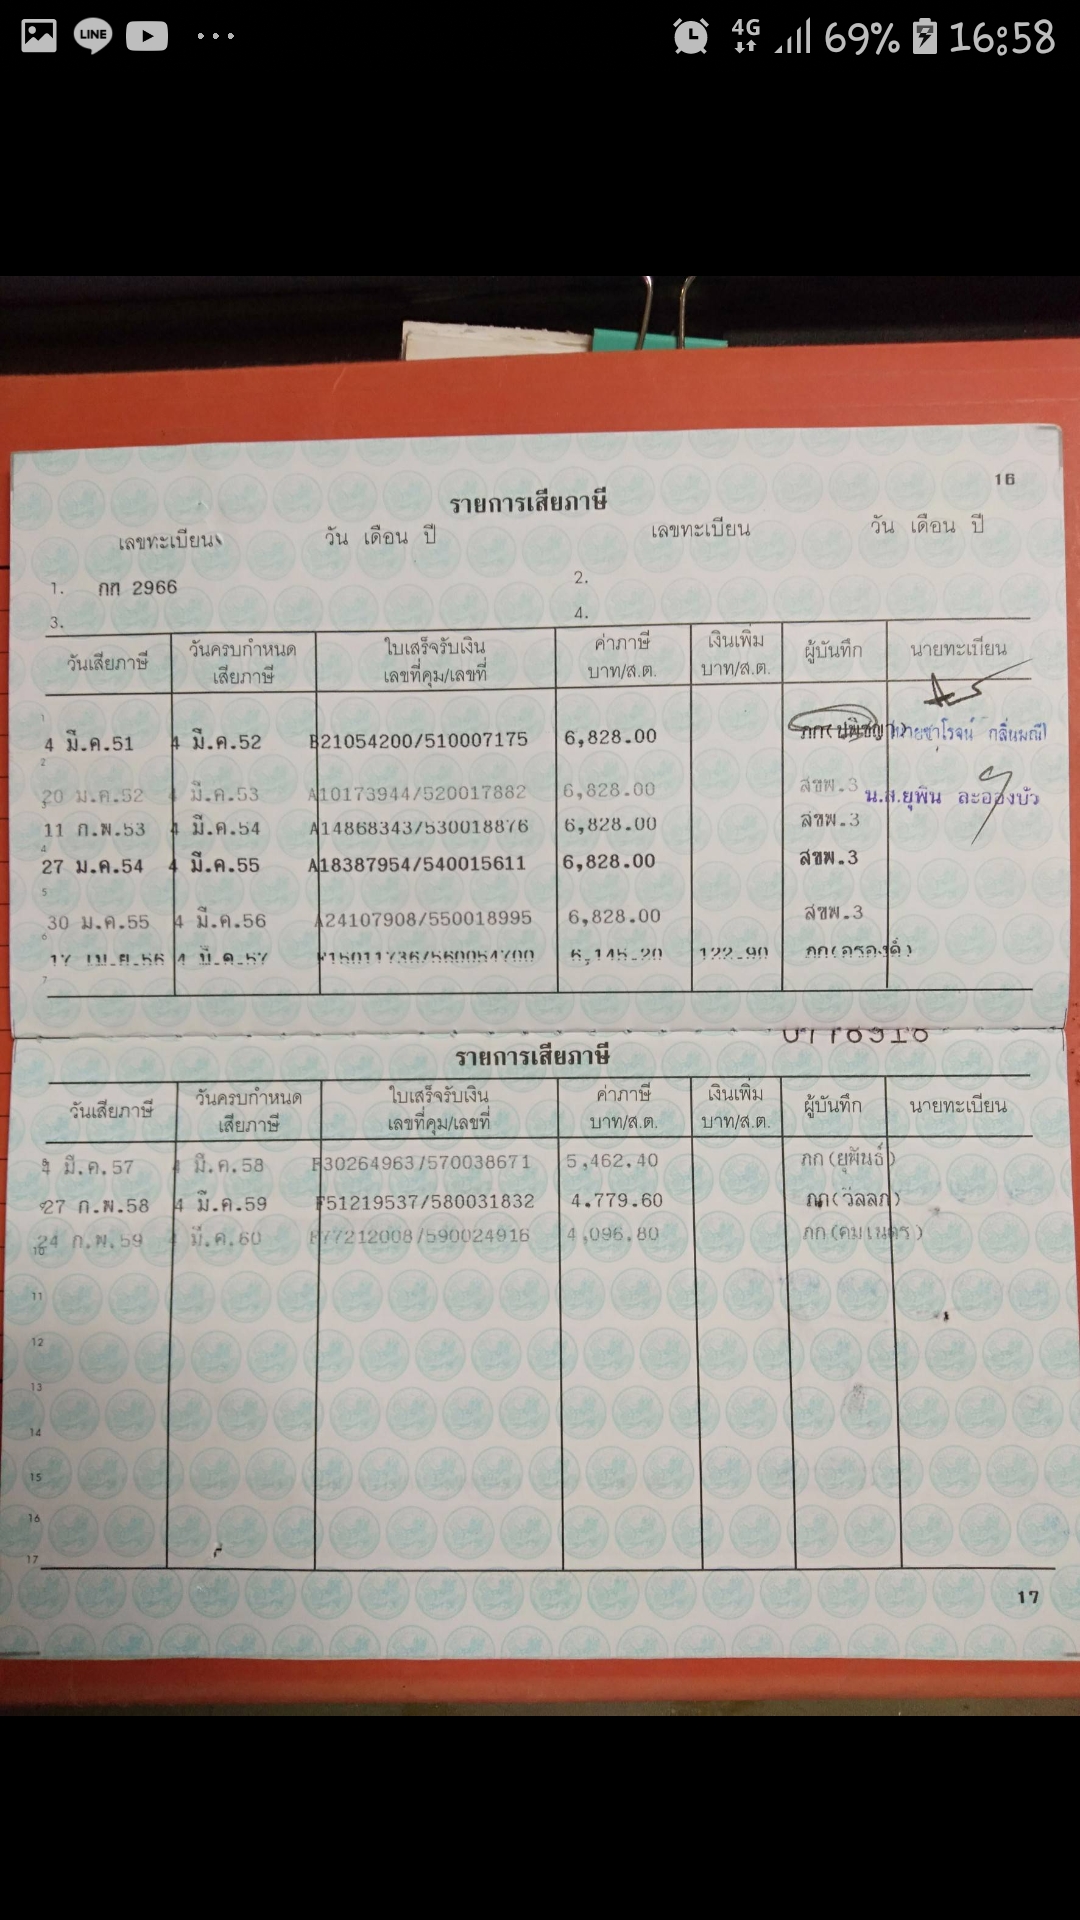 LINE 4G 69% 16:58
16
รายการเสียภาษี
เลขทะเบียน วัน เดือน ปี เลขทะเบียน วัน เดือน ปี
1. กท 2966 2.
3. 4.
วันเสียภาษี วันครบกำหนด ใบเสร็จรับเงิน ค่าภาษี เงินเพิ่ม ผู้บันทึก นายทะเบียน
เสียภาษี เลขที่คุม/เลขที่ บาท/ส.ต. บาท/ส.ต.
1
4 มี.ค.51 4 มี.ค.52 B21054200/510007175 6,828.00
2
20 ม.ค.52 4 มี.ค.53 A10173944/520017882 6,828.00 สขพ.3 น.ส.ยุพิน ละอองบัว
3
11 ก.พ.53 4 มี.ค.54 A14868343/530018876 6,828.00 สขพ.3
4
27 ม.ค.54 4 มี.ค.55 A18387954/540015611 6,828.00 สขพ.3
5
30 ม.ค.55 4 มี.ค.56 A24107908/550018995 6,828.00 สขพ.3
6
17 เม.ย.56 4 มี.ค.57 F15011736/560054700 6,145.20 122.90
7
รายการเสียภาษี
วันเสียภาษี วันครบกำหนด ใบเสร็จรับเงิน ค่าภาษี เงินเพิ่ม ผู้บันทึก นายทะเบียน
เสียภาษี เลขที่คุม/เลขที่ บาท/ส.ต. บาท/ส.ต.
4 มี.ค.57 4 มี.ค.58 F30264963/570038671 5,462.40 ภก(ยุพันธ์)
27 ก.พ.58 4 มี.ค.59 F51219537/580031832 4.779.60
24 ก.พ.59 4 มี.ค.60 F77212008/590024916 4,096.80
10
11
12
13
14
15
16
17
17